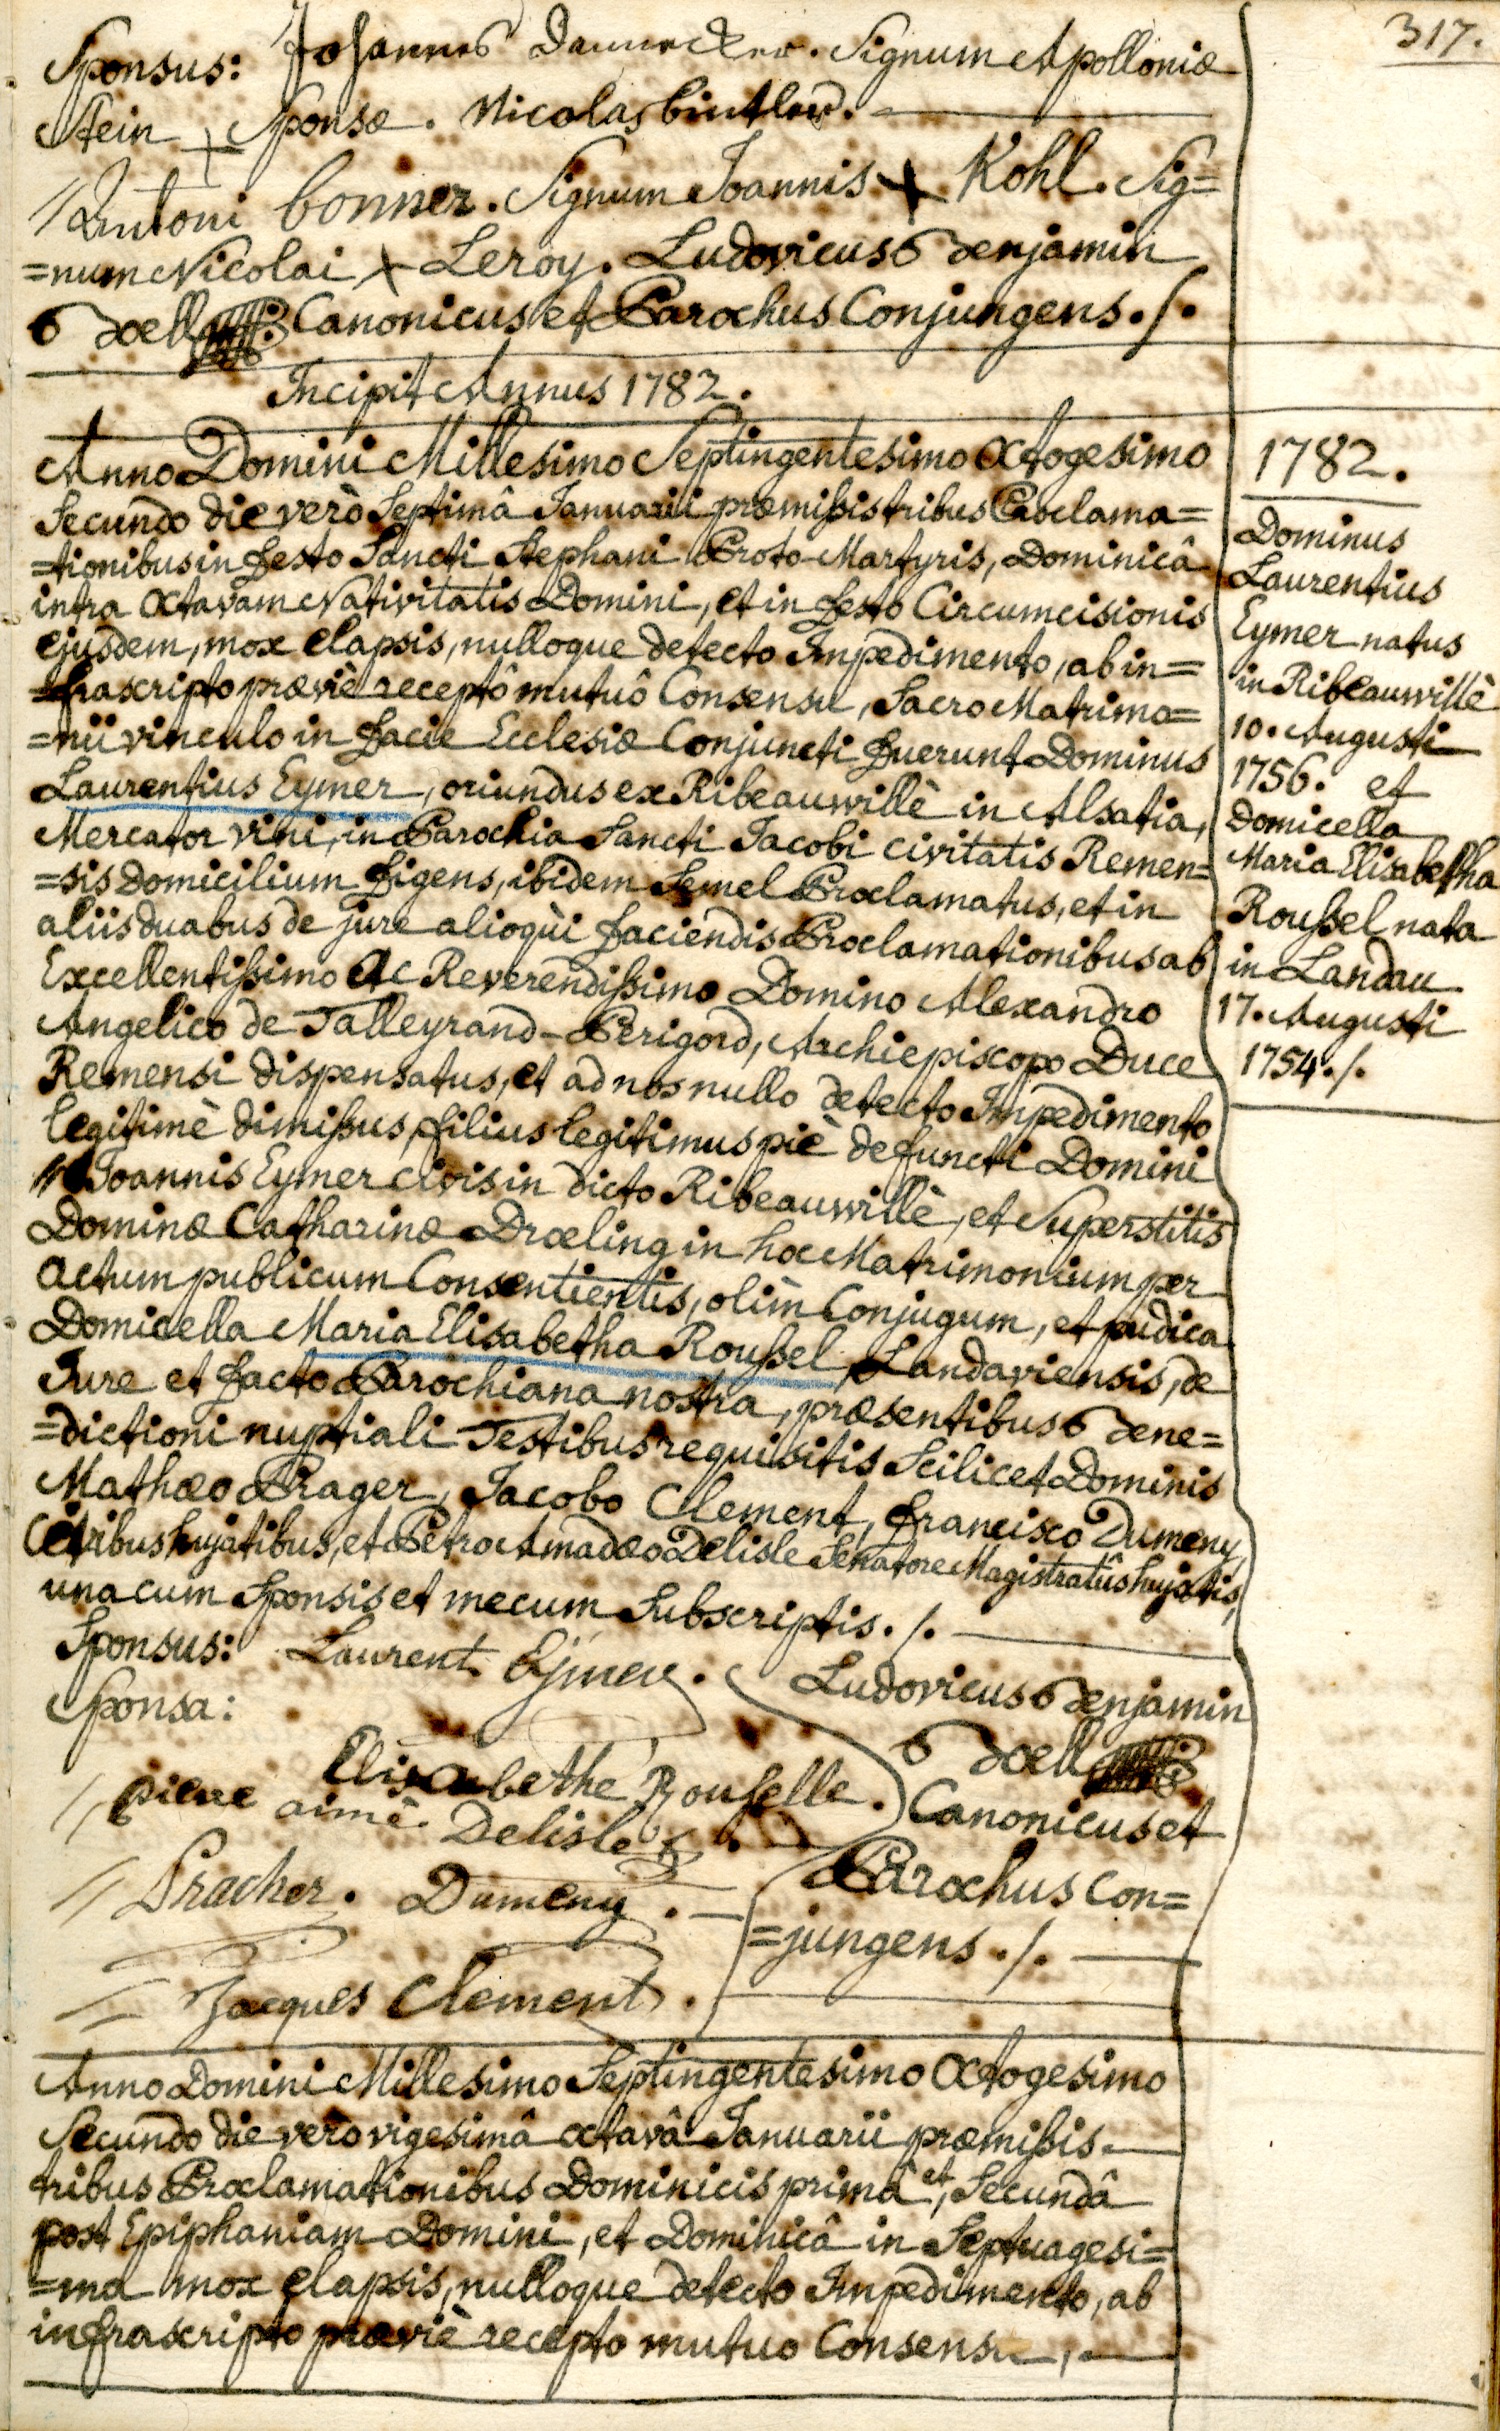 317.
Sponsus: Johannes Dannecker. Signum Apolloniæ
Stein + Sponsæ. Nicolas
// Antoni bonner. Signum Joannis + Kohl. Sig=
=num Nicolai + Leroy. Ludovicus Benjamin
Boell Canonicus et Parochus Conjungens ./.
Incipit Annus 1782.
Anno Domini Millesimo Septingentesimo Octogesimo
Secundo die verò Septimâ Januarii præmissis tribus Proclama=
=tionibus in festo Sancti Stephani Proto-Martyris, Dominicâ
intra Octavam Nativitatis Domini, et in festo Circumcisionis
ejusdem, mox elapsis, nulloque detecto Impedimento, ab in=
=frascripto præviè receptô mutuô Consensu, Sacro Matrimo=
=nii vinculo in facie Ecclesiæ Conjuncti fuerunt Dominus
Laurentius Eymer, oriundus ex Ribeauwillè in Alsatia,
Mercator vini, in Parochia Sancti Jacobi civitatis Remen=
=sis Domicilium figens, ibidem Semel Proclamatus, et in
aliis duabus de jure alioqùi faciendis Proclamationibus ab
Excellentissimo Ac Reverendissimo Domino Alexandro
Angelico de Talleyrand-Perigord, Archiepiscopo Duce
Remensi dispensatus, et ad nos nullo detecto Impedimento
legitimè dimissus, filius legitimus piè defuncti Domini
Joannis Eymer civis in dicto Ribeauwillè, et Superstitis
Dominæ Catharinæ Dræling in hoc Matrimonium per
actum publicum Consentientis, olìm Conjugum, et pudica
Domicella Maria Elisabetha Roussel Landaviensis, de
Jure et facto Parochiana nostra, præsentibus Bene=
=dictioni nuptiali Testibus requisitis Scilicet Dominis
Mathæo Prager, Jacobo Clement, Francisco Dumeny,
Civibus hujatibus, et Petro Amadæo Delisle Senatore Magistratûs hujatis,
una cum Sponsis et mecum Subscriptis ./.
Sponsus: Laurent Ejmer.
Sponsa:
Elisabethe Rousselle.
// pierre aimé Delisle.
// Pracher. Dumeny.
= Jacques Clement.
Ludovicus Benjamin
Boell
Canonicus et
Parochus Con=
=jungens ./.
1782.
Dominus
Laurentius
Eymer natus
in Ribeauwillè
10. Augusti
1756. et
Domicella
Maria Elisabetha
Roussel nata
in Landau
17. Augusti
1754 ./.
Anno Domini Millesimo Septingentesimo Octogesimo
Secundo die verò vigesimâ octavâ Januarii præmissis
tribus Proclamationibus Dominicis primâ et, Secundâ
post Epiphaniam Domini, et Dominicâ in Septuagesi=
=ma mox elapsis, nulloque detecto Impedimento, ab
infrascripto præviè recepto mutuo Consensu,